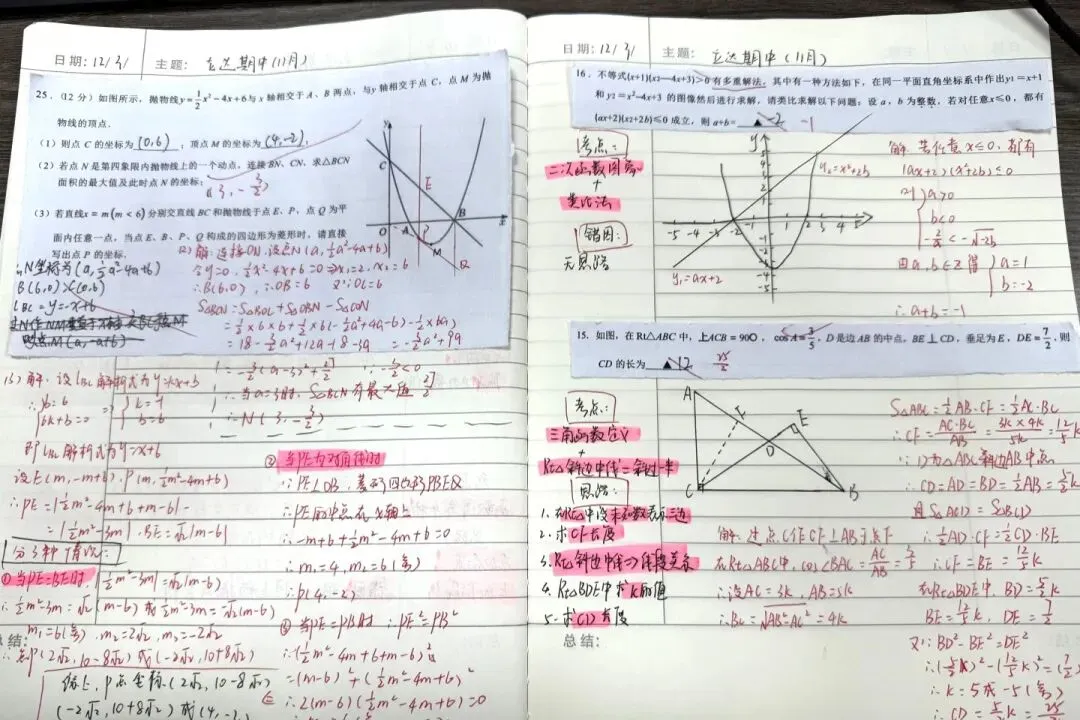 日期: 12/3/ 主题: 立达期中(11月)
25. (12 分) 如图所示，抛物线y=1/2x²-4x+6与 x 轴相交于 A、B 两点，与y 轴相交于点 C，点 M 为抛
物线的顶点.
(1) 则点 C 的坐标为 (0,6)；顶点 M 的坐标为 (4,-2).
(2) 若点 N 是第四象限内抛物线上的一个动点，连接 BN、CN. 求△BCN
面积的最大值及此时点 N 的坐标；
(3, -3/2)
(3) 若直线x=m(m<6)分别交直线 BC 和抛物线于点 E、P，点 Q 为平
面内任意一点，当点 E、B、P、Q 构成的四边形为菱形时，请直接
写出点 P 的坐标.
y C E A B x P M Q
(2) 解: 连接ON, 设点N(a, 1/2a²-4a+6)
令y=0, 1/2x²-4x+6=0 ⇒x₁=2, x₂=6
∴B(6,0), ∴OB=6 又∵OC=6
S△BCN=S△BOC+S△OBN-S△CON
=1/2×6×6+1/2×6(-1/2a²+4a-6)-1/2×6a
=18-3/2a²+12a-18-3a =-3/2a²+9a
=-3/2(a-3)²+27/2 ∵-3/2<0
∴当a=3时, S△BCN有最大值 27/2
∴N(3, -3/2)
N坐标为(a, 1/2a²-4a+6)
B(6,0) C(0,6)
lBC=y=-x+6
M(a, -a+6)
(3) 解, 设lBC解析式为y=kx+b
∴{b=6
6k+b=0 ⇒ {k=-1
b=6
即lBC解析式为y=-x+6
设E(m,-m+6), P(m, 1/2m²-4m+6)
∴PE=|1/2m²-4m+6+m-6|
=|1/2m²-3m|, BE=√2|m-6|
分3种情况:
①当PE=BE时, |1/2m²-3m|=√2|m-6|
∴1/2m²-3m=√2(m-6) 或 1/2m²-3m=-√2(m-6)
m₁=6(舍), m₂=2√2, m₃=-2√2
∴点P(2√2, 10-8√2) 或(-2√2, 10+8√2)
总结:
综上, P点坐标(2√2, 10-8√2)
(-2√2, 10+8√2) 或(4,-2
②当PE为对角线时
∴PE⊥OB, 菱形
PBEQ
∴PE的中点在x轴上
∴-m+6+1/2m²-4m+6=0
∴m₁=4, m₂=6(舍)
∴P(4,-2)
③ 当PE=PB时 ∴PE²=PB²
∴(1/2m²-4m+6+m-6)²
=(m-6)²+(1/2m²-4m+6)²
∴2(m-6)(1/2m²-4m+6)=0
日期: 12/3/ 主题: 立达期中(11月)
16. 不等式(x+1)(x²-4x+3)>0 有多重解法，其中有一种方法如下，在同一平面直角坐标系中作出y₁=x+1
和 y₂=x²-4x+3 的图像然后进行求解，请类比求解以下问题：设 a，b 为整数，若对任意x≤0，都有
(ax+2)(x²+2b)≤0 成立，则 a+b= ▲ -2 -1
考点:
二次函数图象
+
类比法
错因:
无思路
y 5 4 3 2 1 -5 -4 -3 -2 -1 1 2 3 4 5 x -1 -2 -4 -5
y₂=x²+2b
y₁=ax+2
解 若任意x≤0, 都有
(ax+2)(x²+2b)≤0
则{a>0
b<0
-2/a
-√-2b
因a,b∈Z 得 {a=1
b=-2
∴a+b=-1
15. 如图，在 Rt△ABC 中，∠ACB = 90O， cosA=3/5，D 是边 AB 的中点，BE⊥CD，垂足为 E，DE=7/2，则
CD 的长为 ▲ 12 25/2
考点:
三角函数定义
+
Rt△斜边中线=斜边一半
思路:
1. 在Rt△中设未知数表示三边
2. 求CF长度
3. Rt△斜边中线⇒
关系
4. Rt△BDE中求k的值
5. 求CD长度
总结:
A F E D C B
解 过点C作CF⊥AB于点F
在Rt△ABC中, cos∠BAC=AC/AB=3/5
∴设AC=3k, AB=5k
∴BC=√AB²-AC²=4k
S△ABC=1/2AB·CF=1/2AC·BC
∴CF=AC·BC/AB=3k×4k/5k=12/5k
∵D为△ABC斜边AB中点
∴CD=AD=BD=1/2AB=5/2k
且S△ACD=S△BCD
∴1/2AD·CF=1/2CD·BE
∴CF=BE=12/5k
在Rt△BDE中, BD=5/2k
BE=12/5k, DE=7/2
又∵BD²-BE²=DE²
∴(5/2k)²-(12/5k)²=(7/2
∴k=5或-5(舍)
∴CD=5/2k=25/2